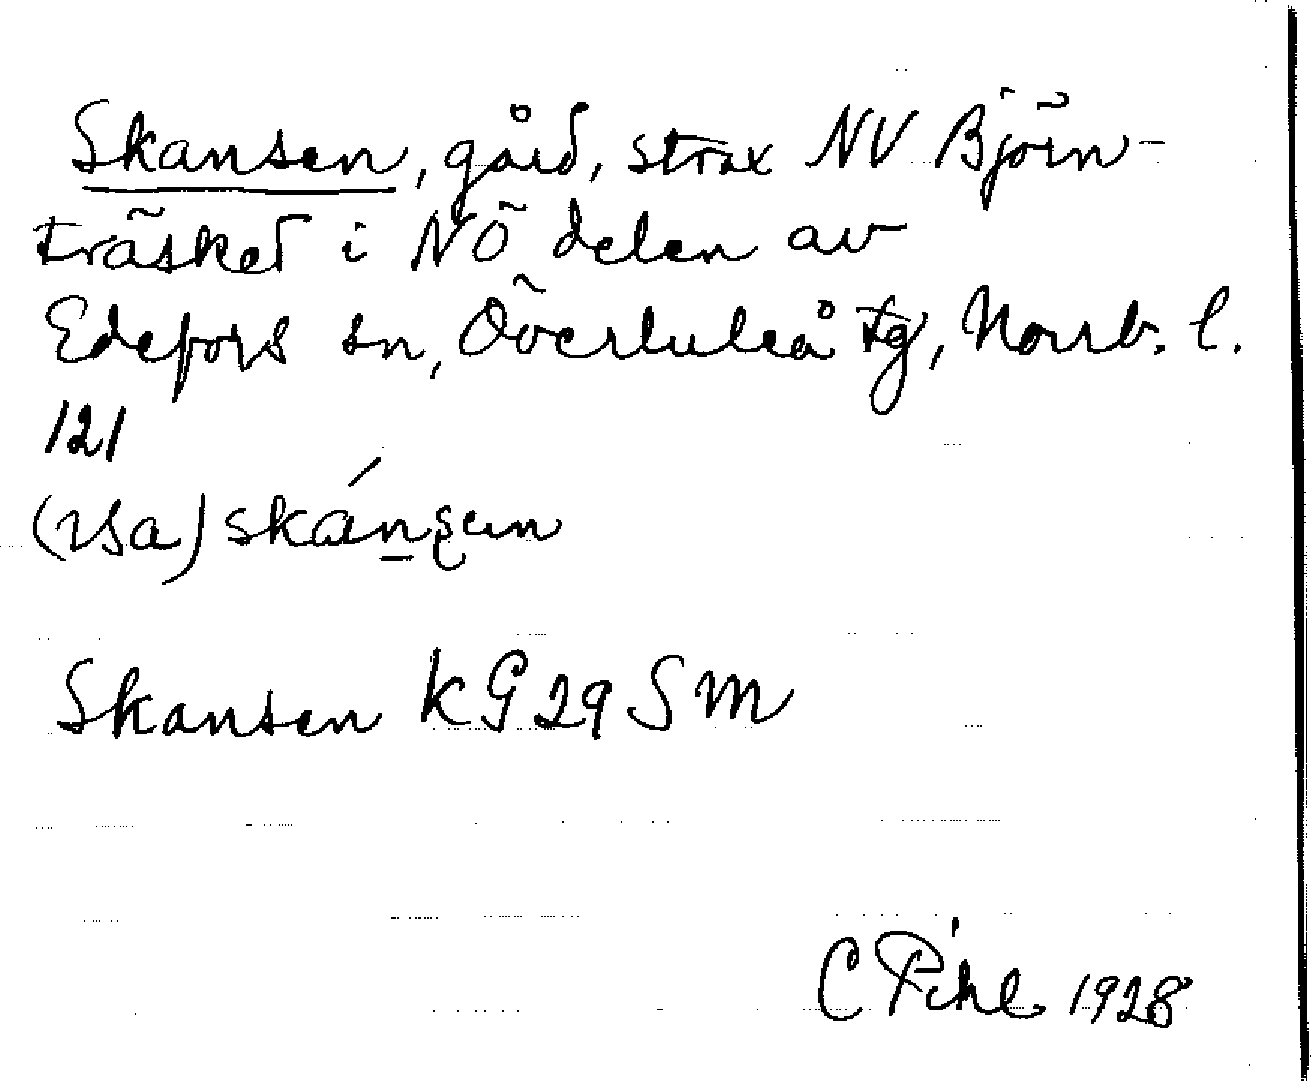 Skansen, gård, strax NV Björn-
träsket i NÖ delen av
Edefors sn, Överluleå tg, Norrb. l.
121
(Isa) skánsen
Skansen KG 29 S M
C Pihl 1928